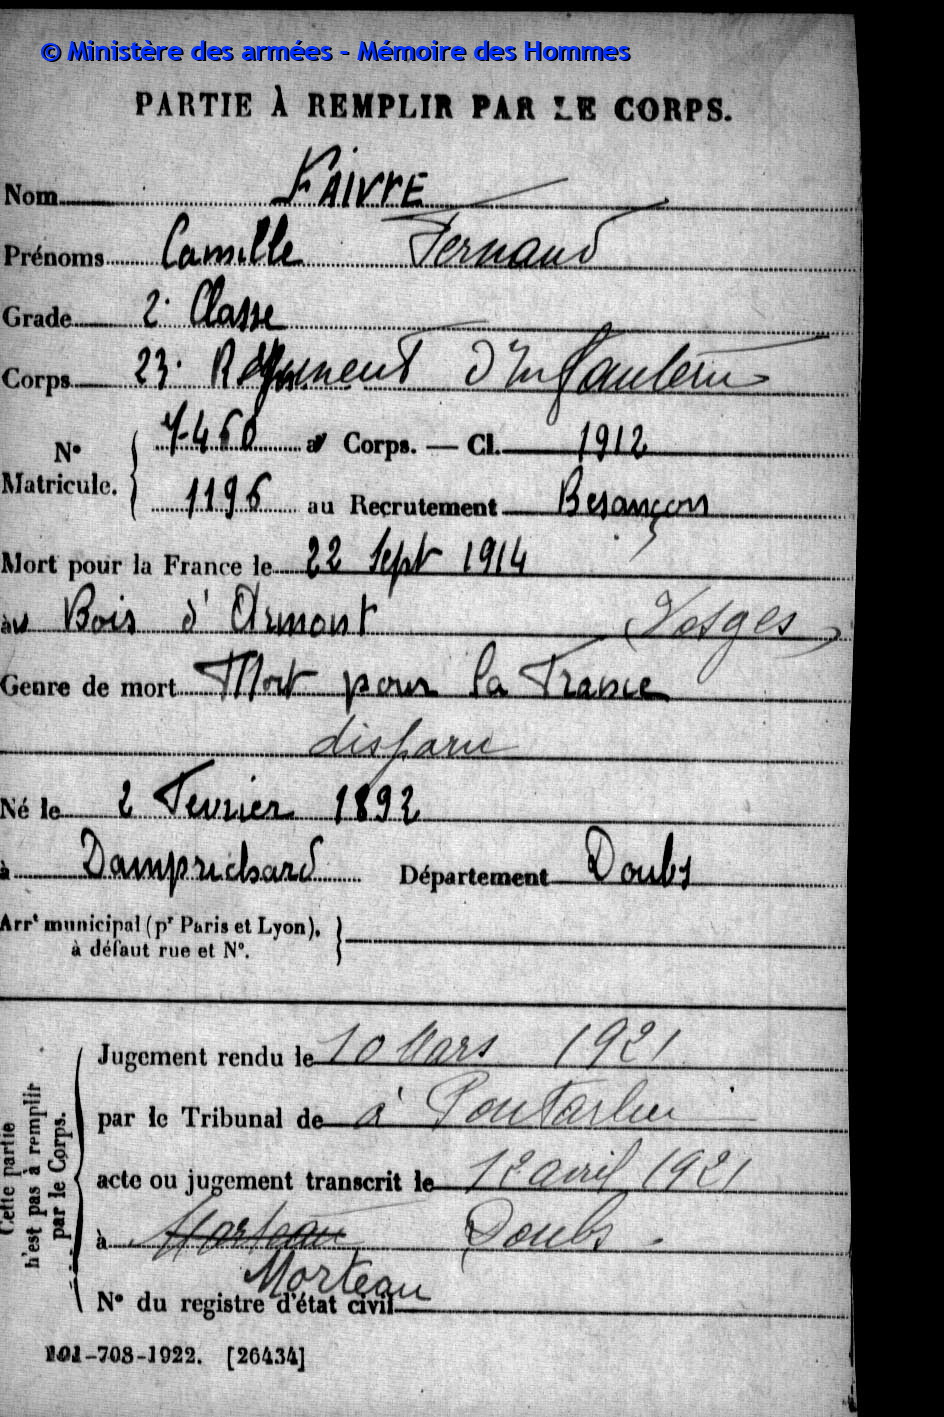 © Ministère des armées - Mémoire des Hommes
PARTIE À REMPLIR PAR LE CORPS.
Nom FAIVRE
Prénoms Camille Fernand
Grade 2e Classe
Corps 23e Régiment d'Infanterie
N° Matricule. { 7460 au Corps. — Cl. 1912
1196 au Recrutement Besançon
Mort pour la France le 22 Sept 1914
au Bois d'Ormont (Vosges)
Genre de mort Mort pour la France
disparu
Né le 2 Fevrier 1892
à Damprichard Département Doubs
Arrt municipal (pr Paris et Lyon), à défaut rue et N°. }
Cette partie n'est pas à remplir par le Corps.
Jugement rendu le 10 Mars 1921
par le Tribunal de à Pontarlier
acte ou jugement transcrit le 12 avril 1921
à Morteau Doubs.
Morteau
N° du registre d'état civil
101-708-1922. [26434]